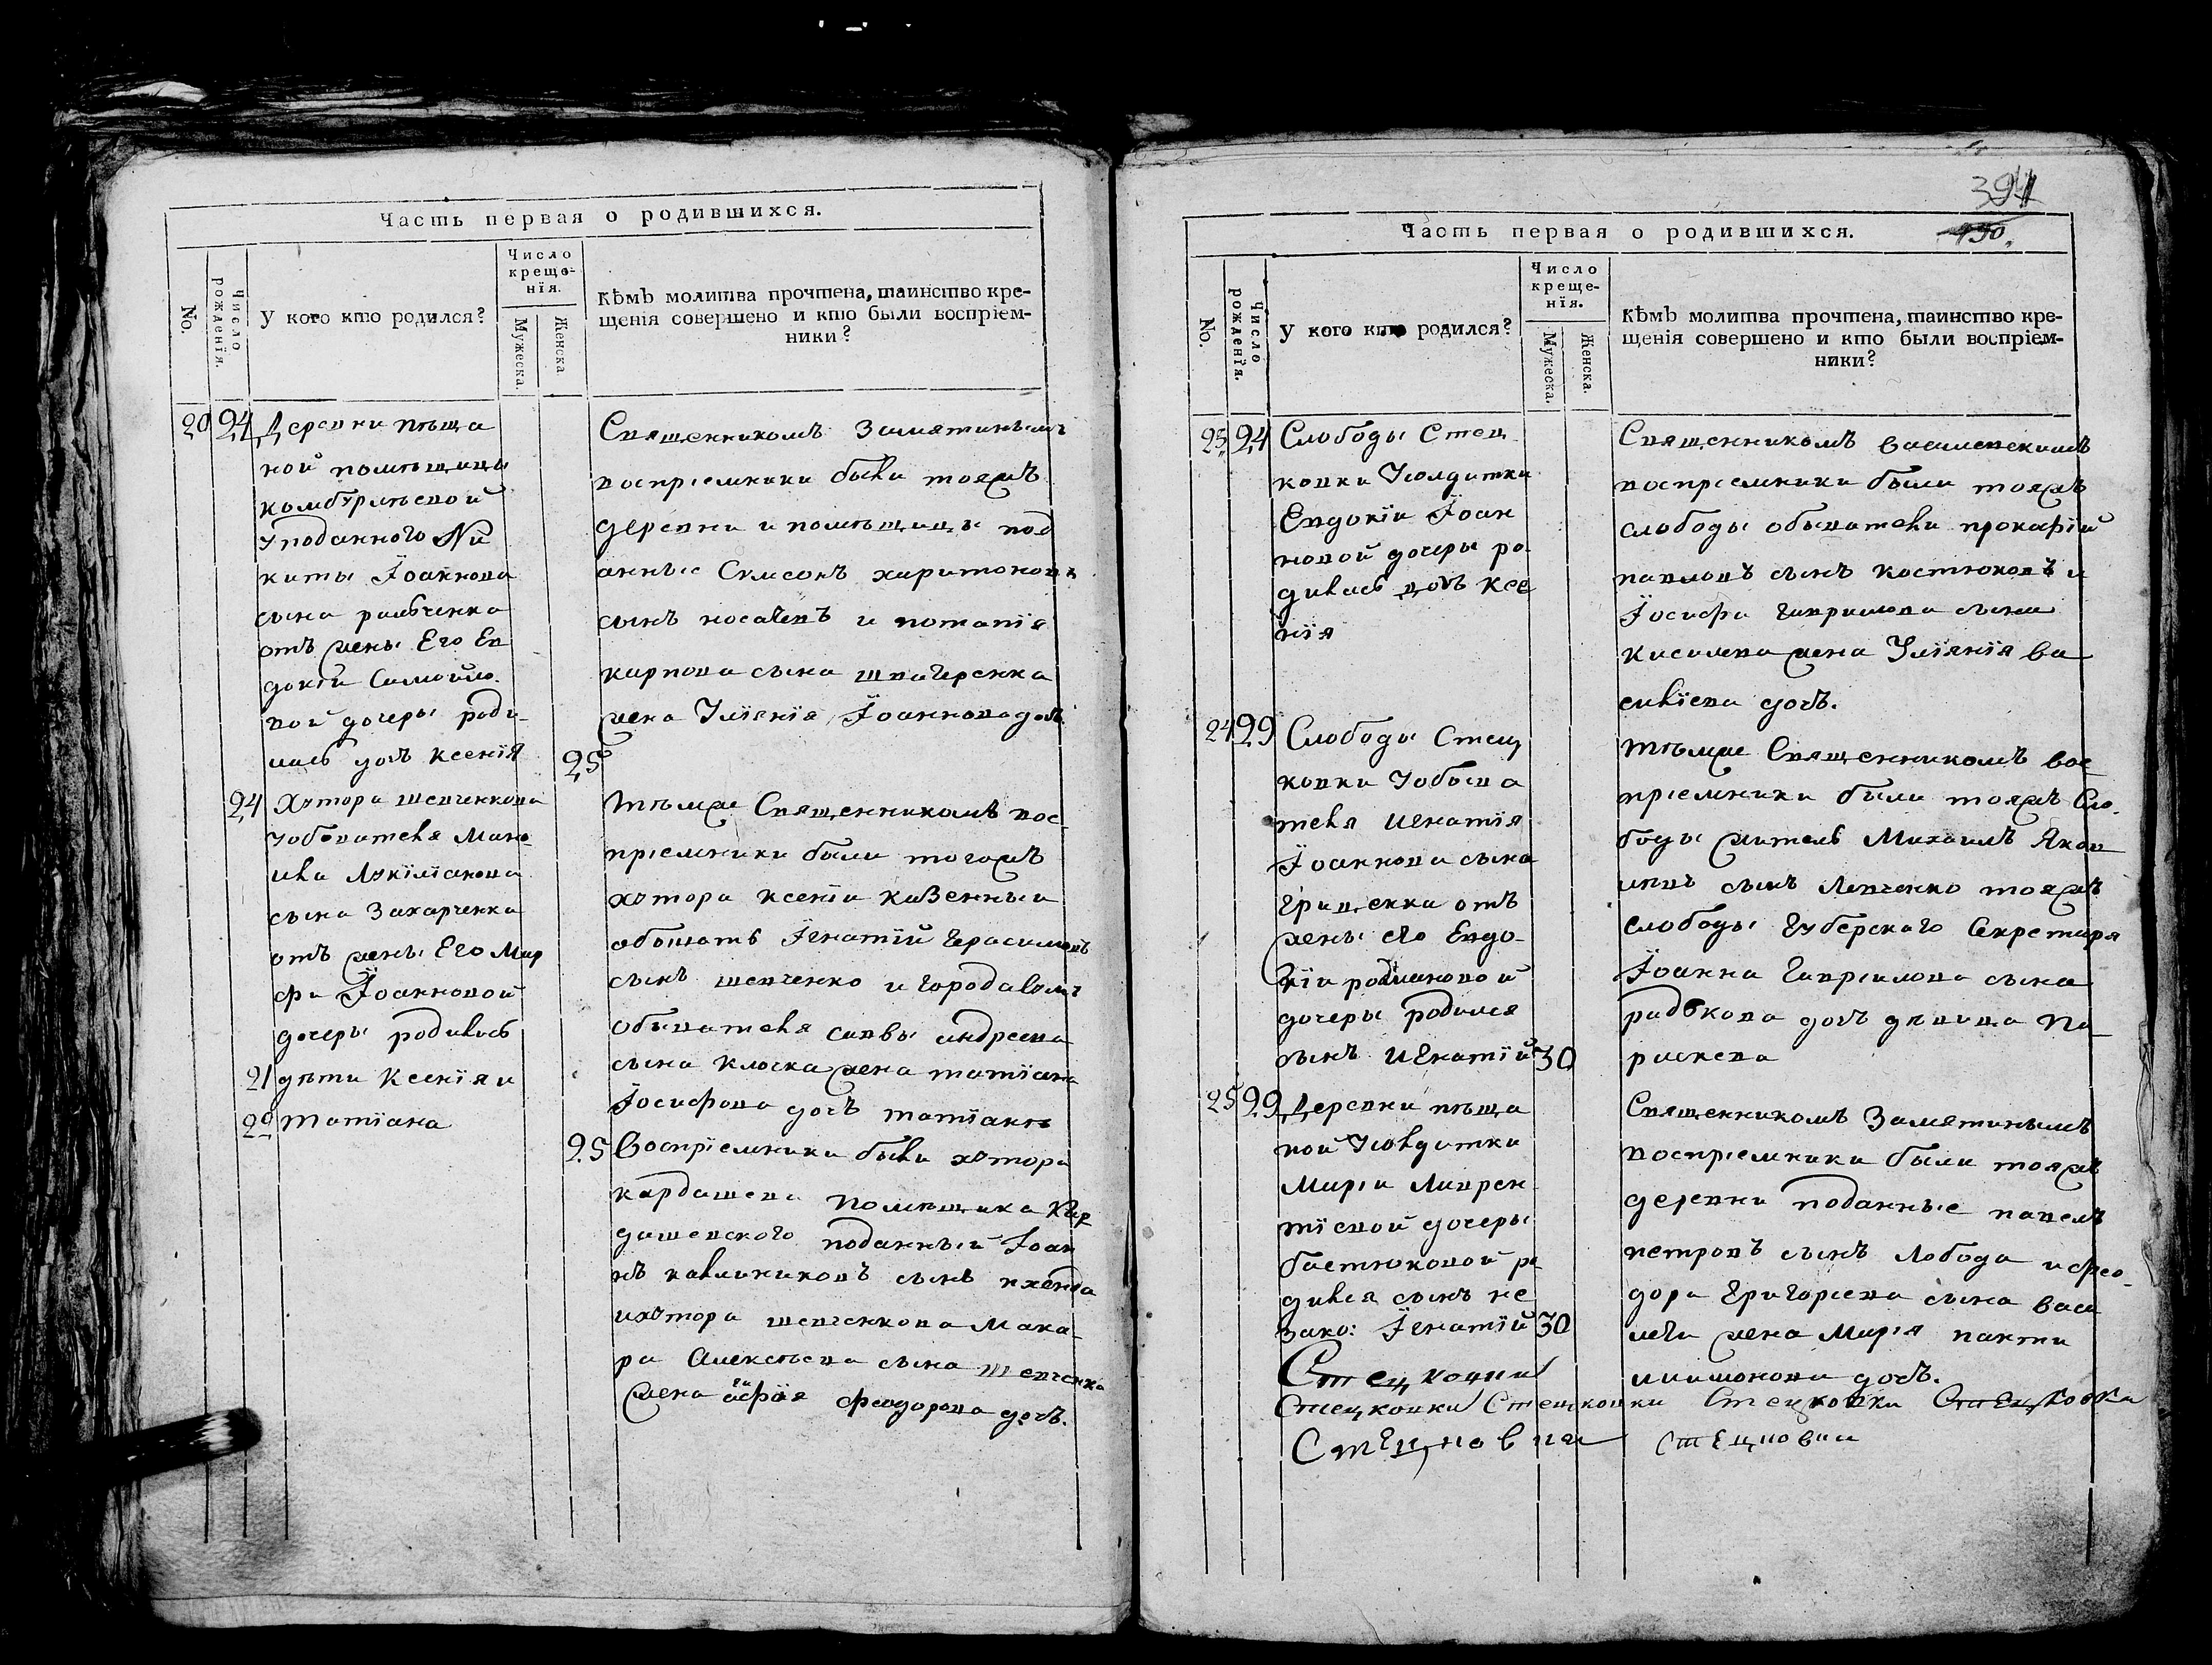 Часть первая о родившихся.
No.
Число рожденїя.
У кого кто родился?
Число
креще-
нїя.
Мужеска.
Женска
Кѣмъ молитва прочтена, таинство кре-
щенія совершено и кто были воспріем-
ники?
20 24 Деревни пѣща
ной помѣщицы
комбурлѣевой
у поданного Ни
киты Їоаннова
сына
отъ жены Его Ев
докіи Самойло
вой дочеры роди
лась дочъ Ксенїя
25
Священникомъ Замятинымъ
воспріемники были тояжъ
деревни и помѣщицы под
анные Сумсонъ харитоновъ
сынъ носачевъ и
карпова сына
жена Улїянїя Їоаннова дочъ
24 Хутора шевченкова
у обывателя Мано
ила
сына Захарченка
отъ жены Его Мар
фы Їоанновой
дочеры родилась
21 дѣти Ксенїя и
22 татїана
тѣмже Священникомъ вос
пріемники были тогожъ
хутора ксеніи казенный
обывать Їгнатїй Герасимовъ
сынъ шевченко и города
обывателя саввы андреева
сына клоска жена татїана
Їосифова дочъ татїанѣ
25 Воспрїемники были хутора
кардашева помѣщика кар
дашевского поданный Їоан
нъ калиниковъ сынъ
и хутора шевченкова Мака
ра Алексѣева сына шевченка
жена феодорова дочъ.
394
430.
Часть первая о родившихся.
No.
Число рожденїя.
У кого кто родился?
Число
креще-
нїя.
Мужеска.
Женска.
Кѣмъ молитва прочтена, таинство кре-
щенія совершено и кто были воспріем-
ники?
23 24 Слободы Стец
ковки У солдатки
Евдокїи Їоан
новой дочеры ро
дилась дочъ Ксе
нїя
Священникомъ василевскимъ
воспріемники были тояжъ
слободы обыватели прокофїй
павловъ сынъ костюковъ и
Їосифа гаврилова сына
киселева жена Улїянїя ва
силїева дочъ.
24 29 Слободы Стец
ковки У обыва
теля игнатїя
Їоаннова сына
грищенка отъ
жены его Евдо
кїи родионовой
дочеры родился
сынъ игнатїй 30
тѣмже Священникомъ вос
пріемники были тояжъ Сло
боды житель Михаилъ Яков
левъ сынъ Левченко тояжъ
слободы губерского Секретаря
Їоанна гавріилова сына
радкова дочъ дѣвица Па
раскева
25 29 Деревни пѣща
ной У солдатки
Маріи Лаврен
тїевой дочеры
бастюковой ро
дился сынъ не
зако: Їгнатїй 30
Священникомъ Замятинымъ
воспріемники были тояжъ
деревни поданные павелъ
петровъ сынъ Лобода и фео
дора Григоріева сына
жена Марія
дочъ.
Стецковки
Стецковки Стецковки Стецковки Стецковки
Стецковки Стецковки